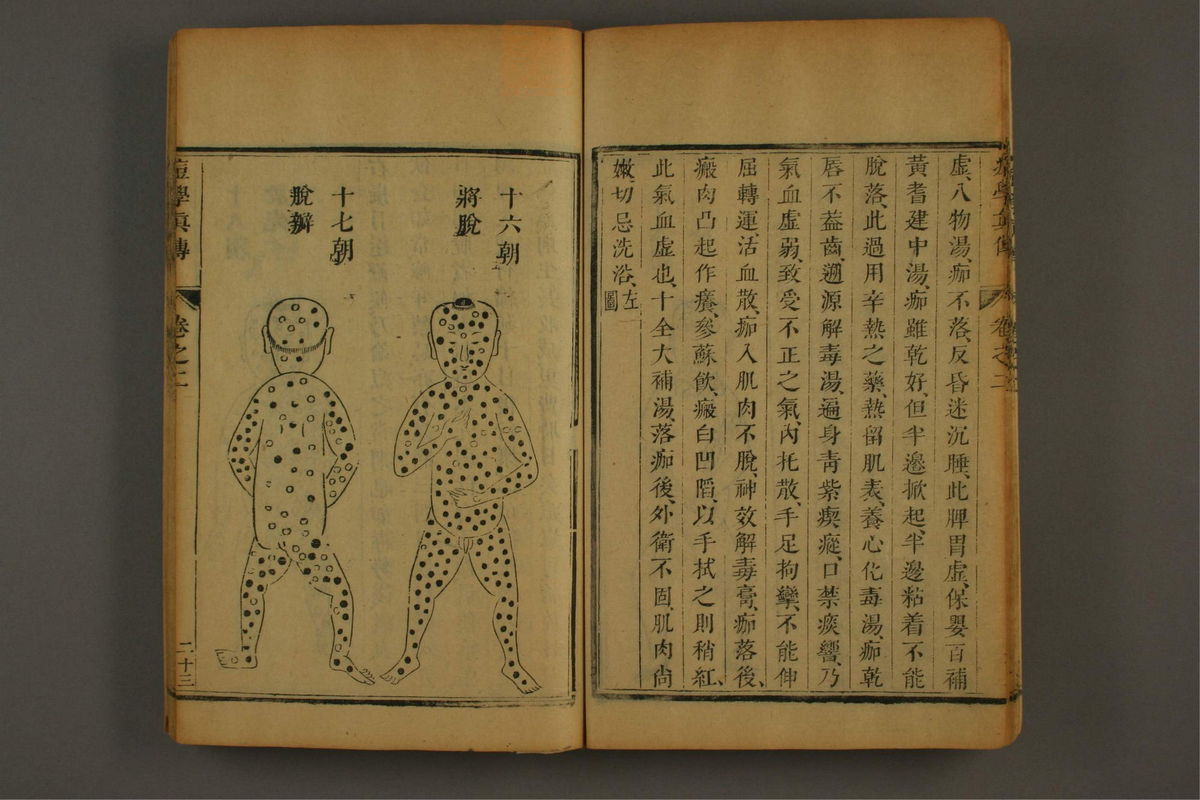 痘學真傳
卷之二
虛、八物湯、痂不落、反昏迷沉睡、此脾胃虛、保嬰百補
黃耆建中湯、痂雖乾好、但半邊掀起、半邊粘着、不能
脫落、此過用辛熱之藥、熱留肌表、養心化毒湯、痂乾
唇不蓋齒、遡源解毒湯、遍身青紫瘈瘲、口禁痰響、乃
氣血虛弱、致受不正之氣、內托散、手足拘攣、不能伸
屈轉運、活血散、痂入肌肉不脫、神效解毒膏、痂落後、
瘢肉凸起作癢、參蘇飲、瘢白凹䧟、以手拭之則稍紅、
此氣血虛也、十全大補湯、落痂後、外衛不固、肌肉尚
嫩、切忌洗浴、左圖
十六朝
將脫
十七朝
脫瓣
痘學真傳
卷之二
二十三